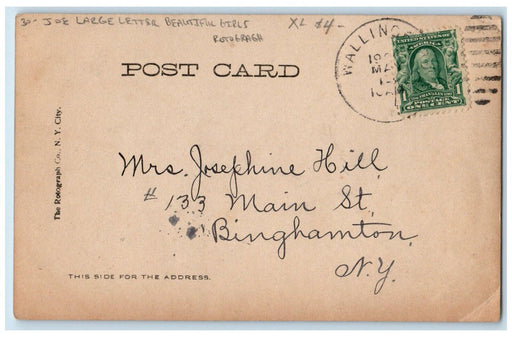 30- JOE LARGE LETTER BEAUTIFUL GIRLS XL $4-
ROTOGRAPH
POST CARD
WALLING
UNITED STATES OF AMERICA
1 1
POSTAGE
ONE CENT
The Rotograph Co., N. Y. City.
Mrs. Josephine Hill,
# 133 Main St,
Binghamton,
N.Y.
THIS SIDE FOR THE ADDRESS.